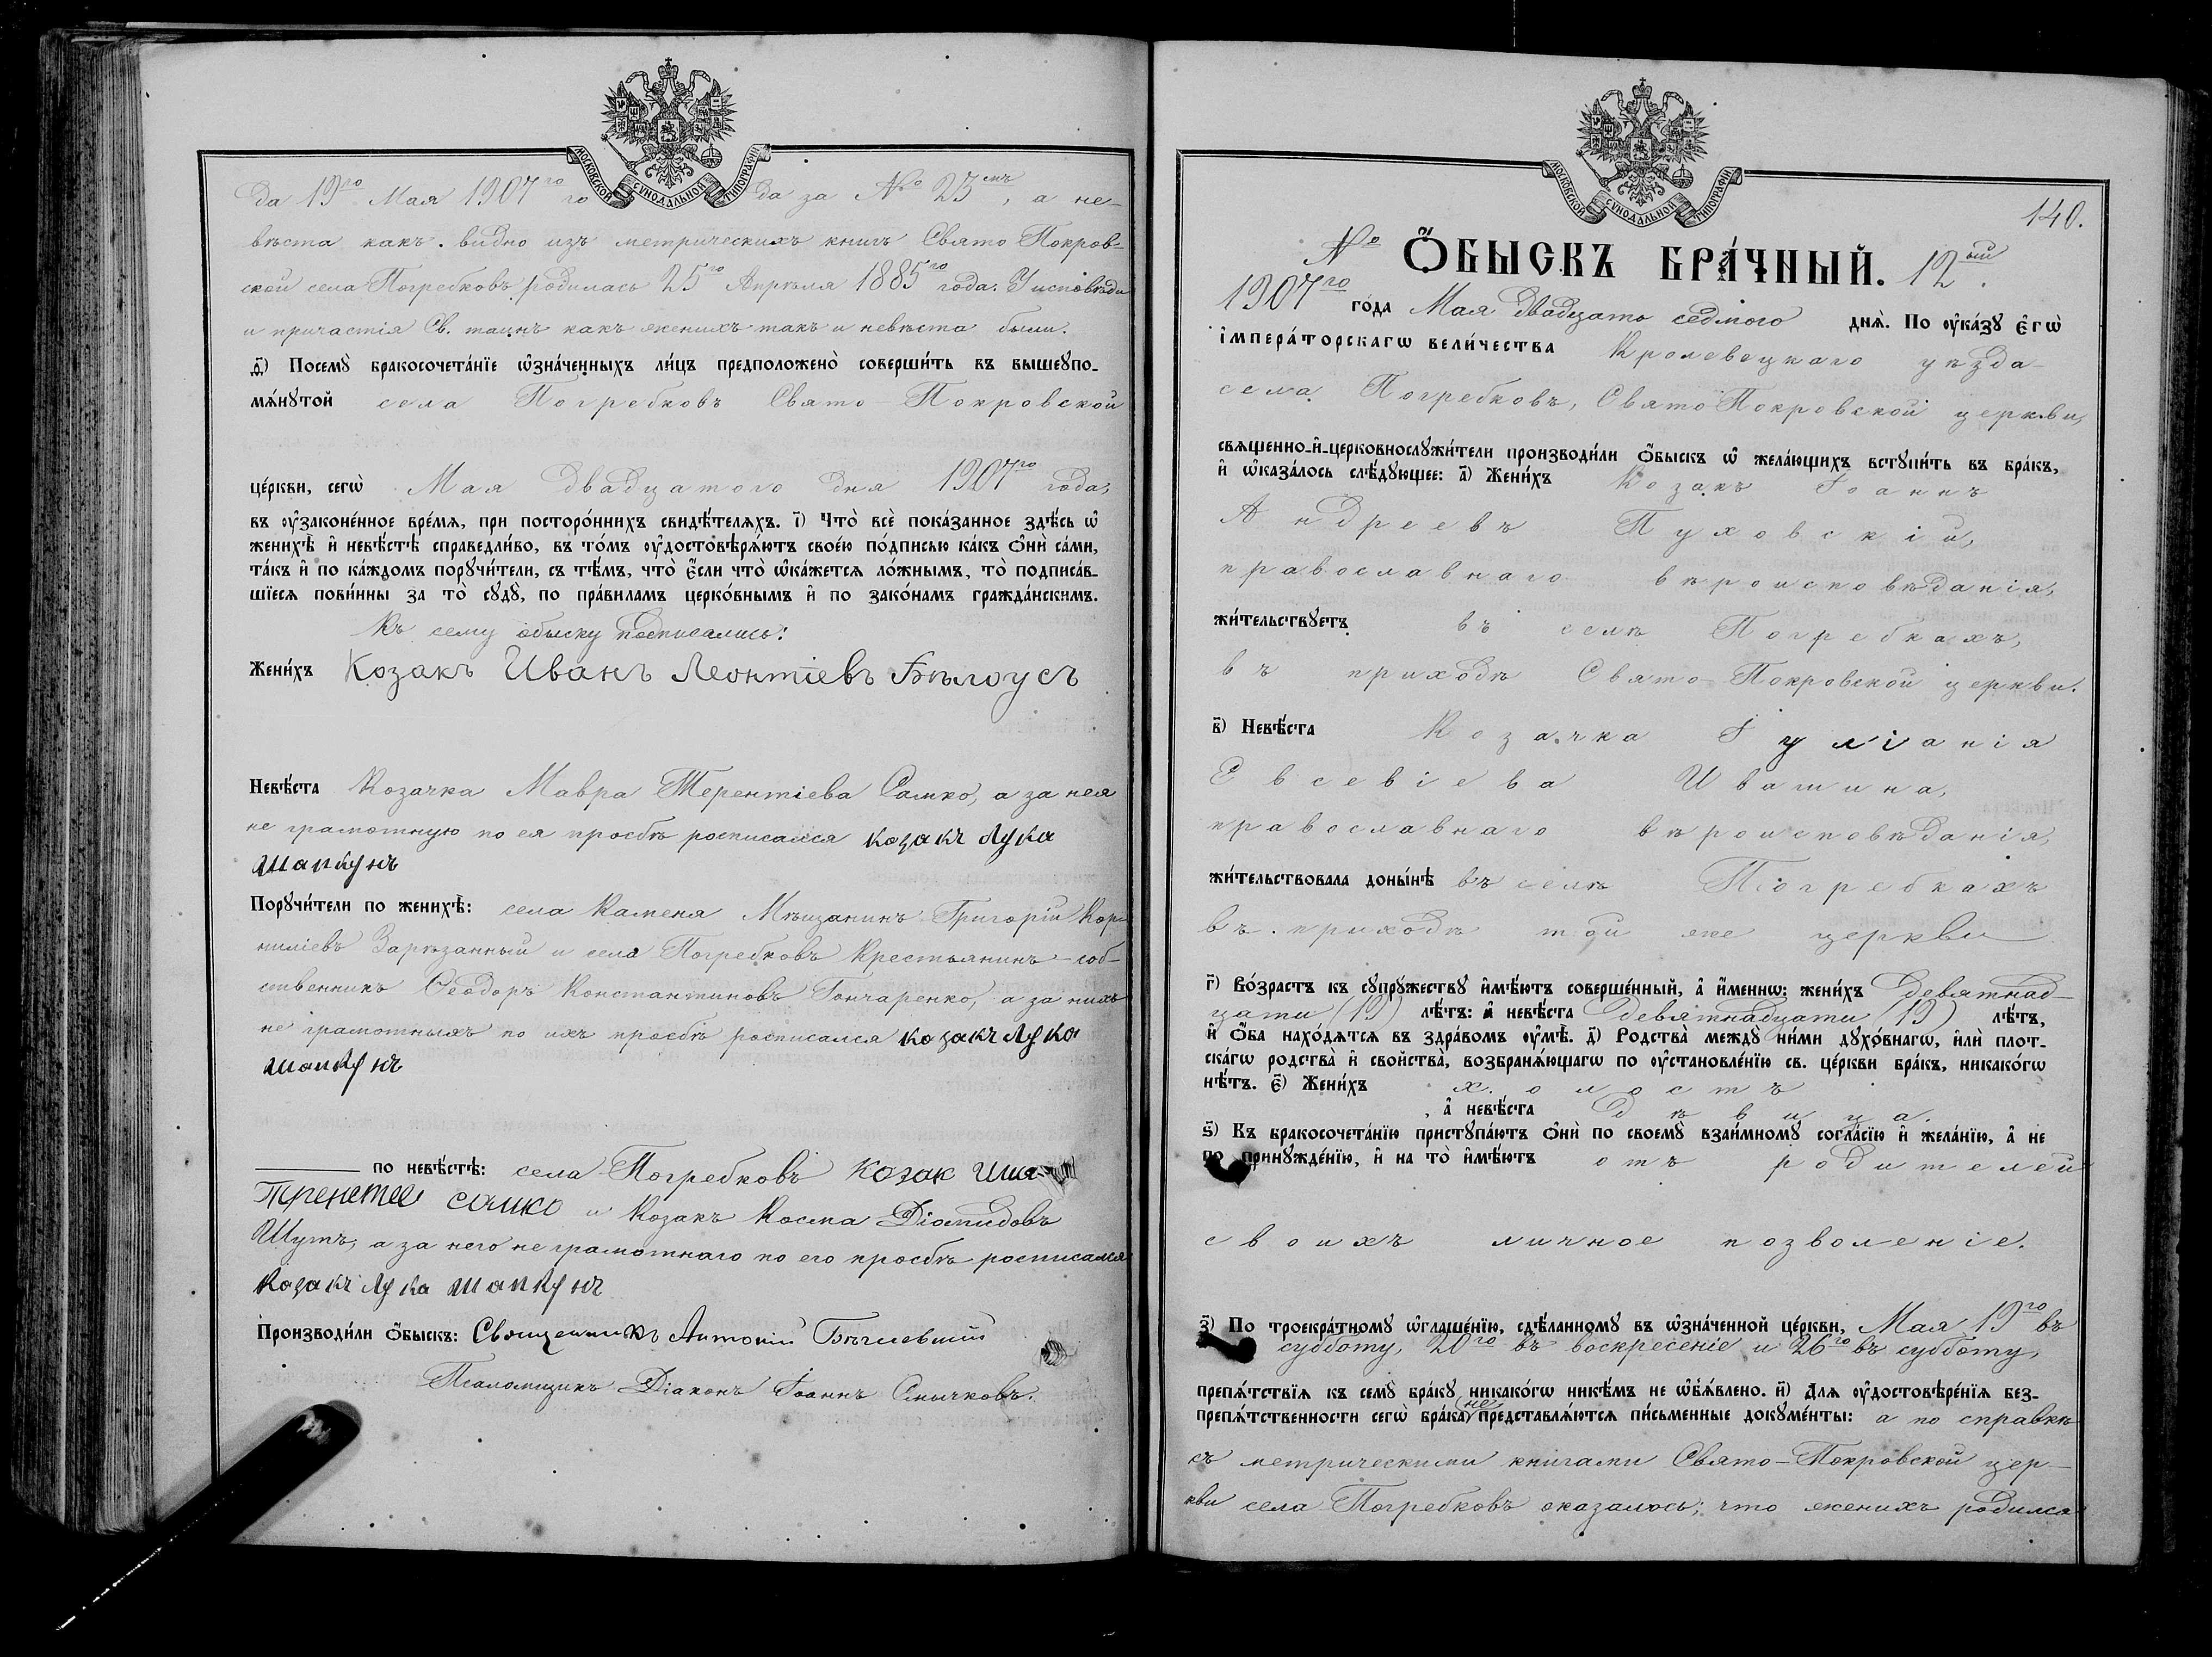 МОСКОВСКОЙ СѴНОДАЛЬНОЙ ТИПОГРАФІИ
да 19го Мая 1907го го да за № 23мъ, а не-
вѣста какъ видно изъ метрическихъ книгъ Свято Покров-
ской села Погребковъ родилась 25го Апрѣля 1885го года. У исповѣди
и причастія Св. таинъ какъ женихъ такъ и невѣста были.
ѳ҃) Посемꙋ̀ бракосочета́нїе ѡ҆зна́ченныхъ ли́цъ предположено̀ соверши́ть въ вышеꙋпо-
мѧ́нꙋтой села Погребковъ Свято-Покровской
це́ркви, сегѡ̀ Мая двадцатого дня 1907го года,
въ ᲂу҆законе́нное вре́мѧ, при посторо́ннихъ свидѣ́телѧхъ. і҃) Что̀ всѐ пока́занное здѣ́сь ѡ҆
женихѣ̀ и҆ невѣ́стѣ справедли́во, въ то́мъ ᲂу҆достовѣрѧ́ютъ свое́ю по́дписью ка́къ ѻ҆нѝ са́ми,
та́къ и҆ по ка́ждомъ порꙋчи́тели, съ тѣ́мъ, что̀ є҆́сли что̀ ѡ҆ка́жетсѧ ло́жнымъ, то̀ подписа́в-
шїесѧ пови́нны за то̀ сꙋдꙋ̀, по пра́виламъ церко́внымъ и҆ по зако́намъ гражда́нскимъ.
Къ сему обыску подписались:
Жени́хъ Козакъ Иванъ Леонтіевъ Бѣлоусъ
Невѣ́ста Козачка Мавра Терентіева Самко, а за нея
не грамотную по ея просьбѣ росписался козакъ Лука
Шапкунъ
Порꙋчи́тели по женихѣ̀: села Каменя Мѣщанинъ Григорій Кор-
ниліевъ Зарѣзанный и села Погребковъ Крестьянинъ-соб-
ственникъ Ѳеодоръ Константиновъ Гончаренко, а за нихъ
не грамотныхъ по ихъ просьбѣ росписался козакъ Лука
Шапкунъ
по невѣ́стѣ: села Погребковъ Козак
самко и Козакъ Косма Діомидовъ
Шутъ, а за него не грамотнаго по его просьбѣ росписался
козакъ Лука Шапкунъ
Производи́ли ѻ҆́быскъ: Священникъ Антоній
Псаломщикъ Діаконъ Іоаннъ
МОСКОВСКОЙ СѴНОДАЛЬНОЙ ТИПОГРАФІИ
140.
№ Ѻ҆́БЫСКЪ БРА́ЧНЫЙ. 12ый.
1907го года Мая двадцать седмого днѧ̀. По ᲂу҆ка́зꙋ є҆гѡ̀
і҆мпера́торскагѡ вели́чества Кролевецкаго уѣзда
села Погребковъ, Свято Покровской церкви,
свѧщенно-и҆-церковнослꙋжи́тели производи́ли ѻ҆́быскъ ѡ҆ жела́ющихъ встꙋпи́ть въ бра́къ,
и҆ ѡ҆каза́лось слѣ́дꙋющее: а҃) Жени́хъ Козакъ Іоаннъ
Андреевъ Пуховскій,
православнаго вѣроисповѣданія,
жи́тельствꙋетъ въ селѣ Погребкахъ,
въ приходѣ Свято-Покровской церкви.
в҃) Невѣ́ста Козачка Іуліанія
Евсевіева Ивашина,
православнаго вѣроисповѣданія,
жи́тельствовала доны́нѣ въ селѣ Погребкахъ
въ приходѣ той же церкви
г҃) Во́зрастъ къ сꙋпрꙋ́жествꙋ и҆мѣ́ютъ соверше́нный, а҆ и҆́меннѡ: жени́хъ девятнад-
цати (19) лѣ́тъ: а҆ невѣ́ста девятнадцати (19) лѣ́тъ,
и҆ ѻ҆́ба нахо́дѧтсѧ въ здра́вомъ ᲂу҆мѣ̀. д҃) Родства̀ междꙋ̀ ни́ми дꙋхо́внагѡ, и҆лѝ плот-
ска́гѡ родства̀ и҆ свойства̀, возбранѧ́ющагѡ по ᲂу҆становле́нїю св. це́ркви бра́къ, никако́гѡ
нѣ́тъ. є҃) Жени́хъ холостъ
, а҆ невѣ́ста дѣвица.
ѕ҃) Къ бракосочета́нїю пристꙋпа́ютъ ѻ҆нѝ по своемꙋ̀ взаи́мномꙋ согла́сїю и҆ жела́нїю, а҆ не
по принꙋжде́нїю, и҆ на то̀ и҆мѣ́ютъ отъ родителей
своихъ личное позволеніе.
з҃) По троекра́тномꙋ ѡ҆глаше́нїю, сдѣ́ланномꙋ въ ѡ҆зна́ченной це́ркви, Мая 19го въ
субботу, 20го въ воскресеніе и 26го въ субботу,
препѧ́тствїѧ къ семꙋ̀ бра́кꙋ никако́гѡ никѣ́мъ не ѡ҆б̾ѧ́влено. и҃) Длѧ ᲂу҆достовѣре́нїѧ без-
препѧ́тственности сегѡ̀ бра́ка не представлѧ́ютсѧ пи́сьменные докꙋме́нты: а по справкѣ
съ метрическими книгами Свято-Покровской цер-
кви села Погребковъ оказалось; что женихъ родился